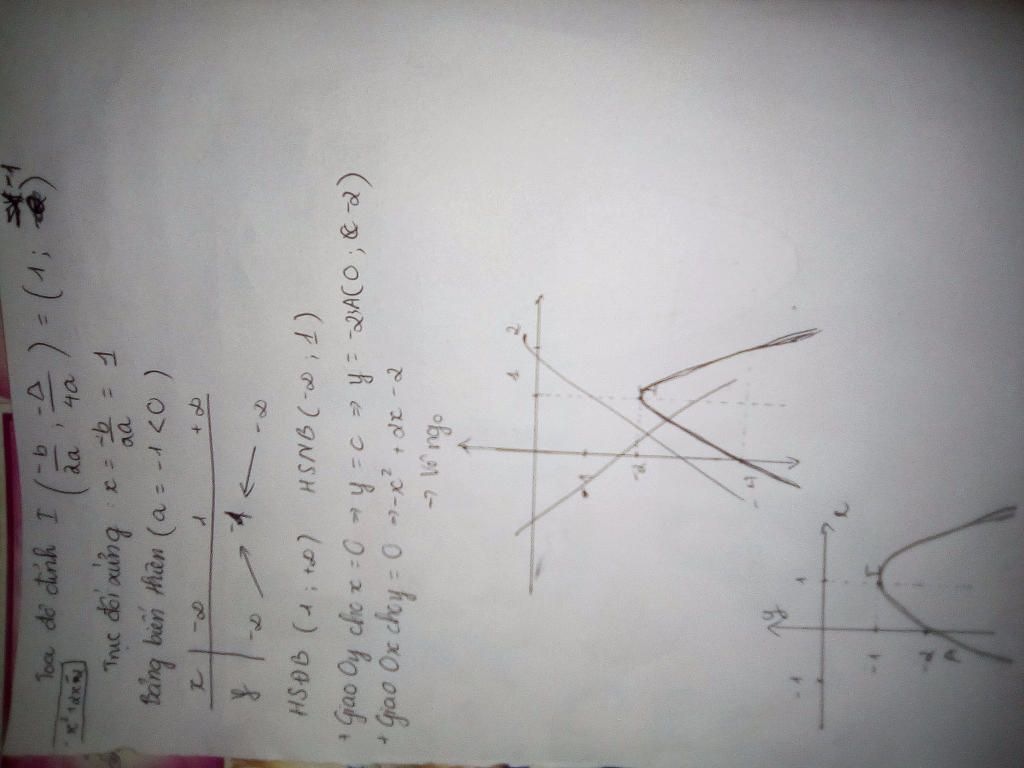 Toạ độ đỉnh I (-b/2a ; -Δ/4a) = (1; -1)
-x² + 2x - 2
Trục đối xứng : x = -b/2a = 1
Bảng biến thiên (a = -1 < 0)
x | -∞ 1 +∞
y | -∞ ↗ -1 ↘ -∞
HSĐB (1 ; +∞) HSNB (-∞ ; 1)
+ Giao Oy cho x = 0 ⇒ y = c ⇒ y = -2 A(0 ; -2)
+ Giao Ox cho y = 0 ⇒ -x² + 2x - 2
→ Vô ng₀
1 2
-1
-2
-4
y
-1 1 x
-1 I
-2
A